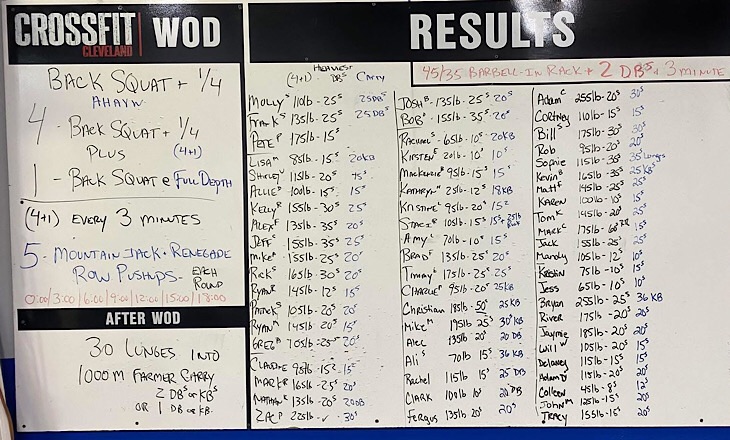 CROSSFIT
CLEVELAND
WOD
BACK SQUAT + 1/4
AHAYW
4 - BACK SQUAT + 1/4
PLUS (4+1)
1 - BACK SQUAT @ FULL DEPTH
(4+1) EVERY 3 MINUTES
5 - MOUNTAIN JACK - RENEGADE
ROW PUSHUPS - EACH ROUND
0:00/3:00/6:00/9:00/12:00/15:00/18:00
AFTER WOD
30 LUNGES INTO
1000 M FARMER CARRY
2 DBS OR KBS
OR 1 DB OR KB
RESULTS
45/35 BARBELL-IN RACK + 2 DBS + 3 MINUTE
HEAVIEST
(4+1) - DBS CARRY
MOLLY 110lb - 25S 25DBS
FRANKS 135lb - 25S 25DBS
PETE 175lb - 15S
LISA 85lb - 15S 20KB
SHIRLEY 115lb - 20S
ALLIE 100lb - 15S 15S
KELLY 155lb - 30S 25S
ALEX 135lb - 35S 20S
JEFF 155lb - 35S 25S
MIKE 155lb - 25S 20S
RICK 165lb - 30S 20S
RYAN 145lb - 12S 15S
PATRICK 105lb - 20S 20S
RYAN 145lb - 20S 15S
GREG 205lb - 25S 20S
CLAUDE 95lb - 15S 15S
MARK 165lb - 25S 20S
NATHAN 135lb - 20S 20DB
ZAC 225lb - ✓ 30S
JOSH 135lb - 25S 20S
BOB 155lb - 35S 20S
RACHAEL 65lb - 10S 20KB
KIRSTEN 20lb - 10S 10S
MACKENZIE 95lb - 15S 15S
KATHRYN 25lb - 12S 18KB
KRISTINE 95lb - 20S
STACI 105lb - 15S
AMY 70lb - 10S 15S
BRAD 135lb - 25S 20S
Timmy 175lb - 25S 25S
CHARLIE 95lb - 20S 25KB
Christian 185lb - 50S 25KB
MIKE 195lb 25S 30KB
Alec 135lb 20S 20DB
Ali 70lb 15S 36KB
Rachel 115lb 15S 25DB
CLARK 100lb 10S 20DB
Fergus 135lb 20S 20S
Adam 255lb - 20S 30S
Cortney 110lb - 15S 15S
Bill 175lb - 30S 30S
Rob 95lb - 20S 20S
Sophie 115lb - 35S 35 Lunges
Kevin 165lb - 35S 25KBS
Matt 145lb - 25S 25S
KAREN 100lb - 10S 15S
Tom 145lb - 20S 25S
MARK 175lb - 15S
Jack 155lb - 25S 25S
Mandy 105lb - 12S 10S
Kristin 75lb - 10S 15S
Jess 65lb - 10S 10S
Bryan 255lb - 25S 36KB
River 175lb - 20S 20S
Jaymie 185lb - 20S 20S
Will 105lb - 20S 15S
Delaney 115lb - 15S 15S
Adam 115lb - 20S 20S
Colleen 45lb - 8S 12S
John 125lb - 15S 20S
TRACY 155lb - 15S 20S